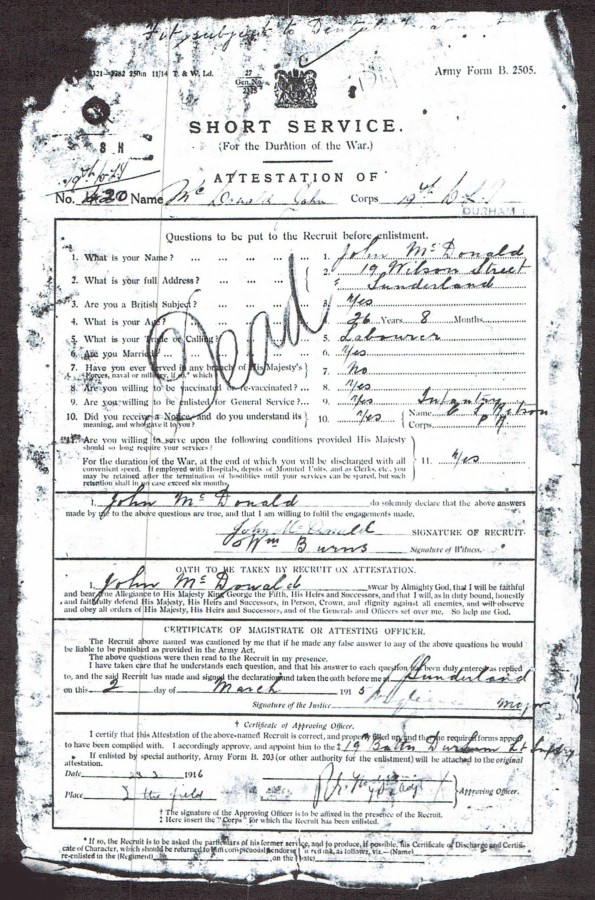 Fit, subject to Dental treatment
250m 11/14 T. & W. Ld.
27
Gen. No.
Army Form B. 2505.
8 H
SHORT SERVICE.
(For the Duration of the War.)
ATTESTATION OF
No. 20 Name Mc Donald John Corps 19th D.L.I.
DURHAM
Questions to be put to the Recruit before enlistment.
1. What is your Name? ... ... ... 1. John Mc Donald
2. What is your full Address? ... ... ... 2. 19 Wilson Street
Sunderland
3. Are you a British Subject? ... ... ... 3. Yes
4. What is your Age? ... ... 4. 26 Years 8 Months
5. What is your Trade or Calling? ... 5. Labourer
6. Are you Married? ... ... 6. Yes
7. Have you ever served in any branch of His Majesty's
Forces, naval or military, if so, which? 7. No
8. Are you willing to be vaccinated or re-vaccinated? 8. Yes
9. Are you willing to be enlisted for General Service? 9. Yes Infantry
10. Did you receive a Notice, and do you understand its
meaning, and who gave it to you? 10. Yes Name
Corps
Dead
11. Are you willing to serve upon the following conditions provided His Majesty
should so long require your services?
For the duration of the War, at the end of which you will be discharged with all
convenient speed. If employed with Hospitals, depots of Mounted Units, and as Clerks, etc., you
may be retained after the termination of hostilities until your services can be spared, but such
retention shall in no case exceed six months. 11. Yes
I, John Mc Donald do solemnly declare that the above answers
made by me to the above questions are true, and that I am willing to fulfil the engagements made.
John McDonald SIGNATURE OF RECRUIT
Wm Burns Signature of Witness.
OATH TO BE TAKEN BY RECRUIT ON ATTESTATION.
I, John Mc Donald swear by Almighty God, that I will be faithful
and bear true Allegiance to His Majesty King George the Fifth, His Heirs and Successors, and that I will, as in duty bound, honestly
and faithfully defend His Majesty, His Heirs and Successors, in Person, Crown, and dignity against all enemies, and will observe
and obey all orders of His Majesty, His Heirs and Successors, and of the Generals and Officers set over me. So help me God.
CERTIFICATE OF MAGISTRATE OR ATTESTING OFFICER.
The Recruit above named was cautioned by me that if he made any false answer to any of the above questions he would
be liable to be punished as provided in the Army Act.
The above questions were then read to the Recruit in my presence.
I have taken care that he understands each question, and that his answer to each question has been duly entered as replied
to, and the said Recruit has made and signed the declaration and taken the oath before me at Sunderland
on this 2 day of March 1915
Signature of the Justice Major
† Certificate of Approving Officer.
I certify that this Attestation of the above-named Recruit is correct, and properly filled up, and the required forms appear
to have been complied with. I accordingly approve, and appoint him to the ‡ 19 Battn Durham Lt Infty
If enlisted by special authority, Army Form B. 203 (or other authority for the enlistment) will be attached to the original
attestation.
Date 3 1916
Place In the field Approving Officer.
† The signature of the Approving Officer is to be affixed in the presence of the Recruit.
‡ Here insert the "Corps" for which the Recruit has been enlisted.
* If so, the Recruit is to be asked the particulars of his former service, and to produce, if possible, his Certificate of Discharge and Certifi-
cate of Character, which should be returned to him conspicuously endorsed in red ink, as follows, viz.—(Name)
re-enlisted in the (Regiment) on the (Date)